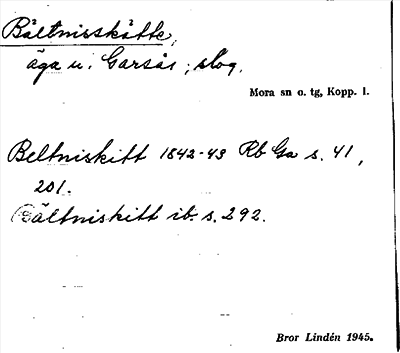 Bältnisskätte,
äga u. Garsås; skog.
Mora sn o. tg, Kopp. l.
Beltniskitt 1642-43 Rb Ga s. 41,
201.
Bältniskitt ib. s. 292.
Bror Lindén 1945.